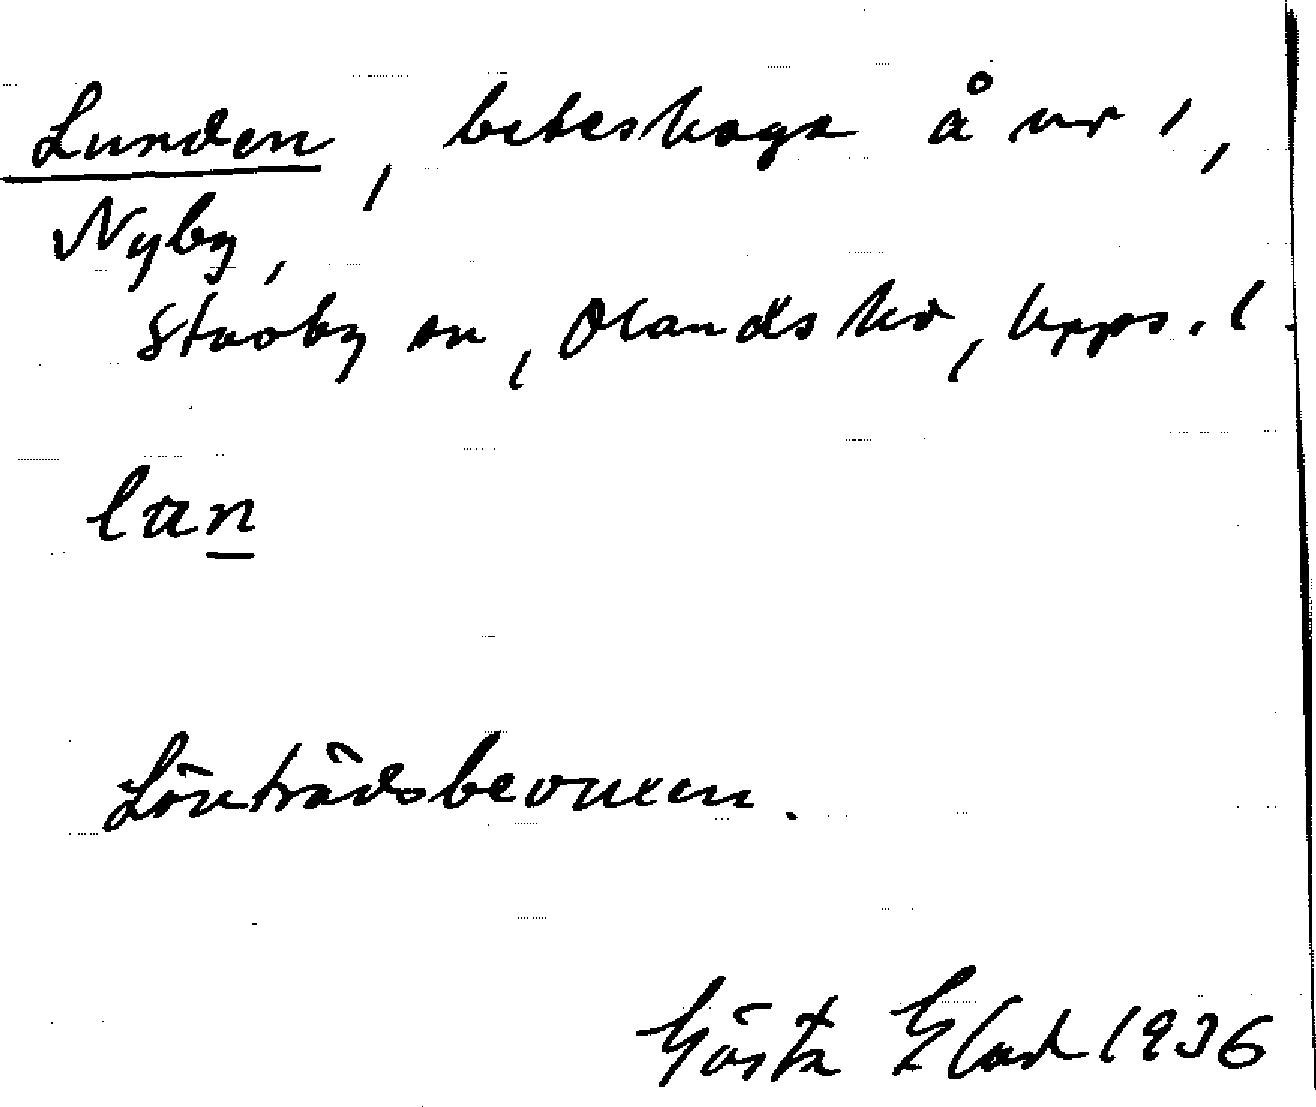 Lunden, beteshage å nr 1,
Nyby,
Stavby sn, Olands hd, Upps. l.
lan
Lövträdsbevuxen.
Gösta Elad 1936